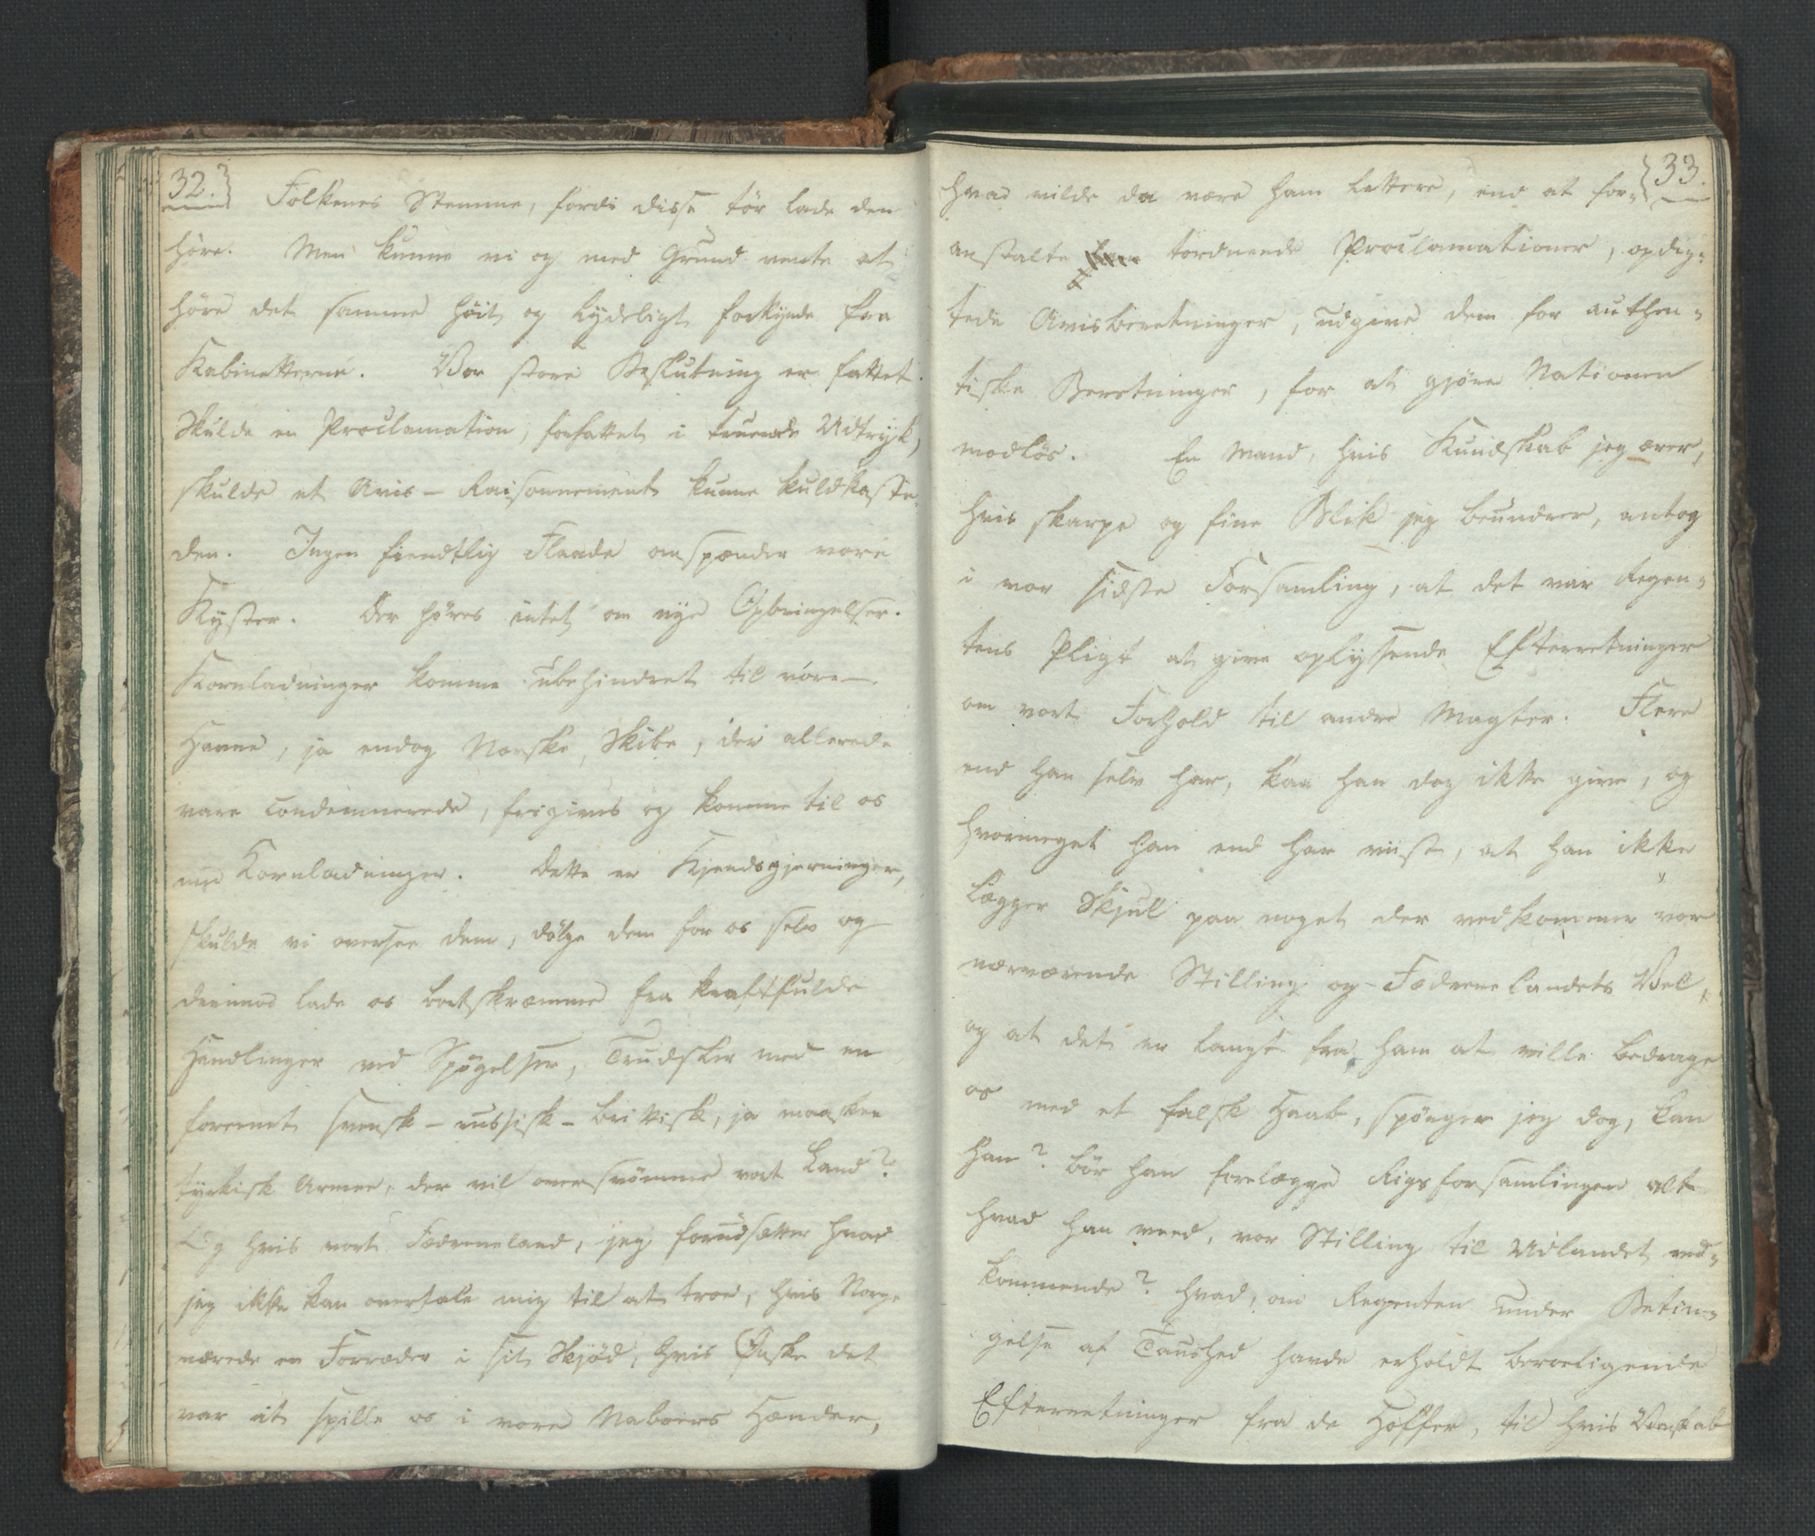 32.
Folkenes Stemme, fordi disse tör lade den
höre. Men kunne vi og med Grund vente at
höre det samme höit og lydeligt forkynde fra
Kabinetterne. Vor store Beslutning er fattet.
Skulde en Proclamation, forfattet i truende Udtryk,
skulde et Avis-Raisonnement kunne kuldkaste
den. Ingen fiendtlig Flaade omspænder vore
Kyster. Der höres intet om nye Opbringelser.
Kornladninger komme ubehindret til vore
Havne, ja endog Norske Skibe, der allerede
vare condemnerede, frigives og komme til os
med Kornladninger. Dette er Kjendsgjerninger,
skulde vi oversee dem, dölge dem for os selv og
derimod lade os bortskræmme fra kraftfulde
Handlinger ved Spögelser, Trudsler med en
foreenet svensk-russisk-brittisk, ja maaskee
tyrkisk Armee, der vil oversvömme vort Land?
Og hvis vort Fædreneland, jeg forudsætter hvad
jeg ikke kan overtale mig til at troe, hvis Norge
nærede en Forræder i sit Skjöd, hvis Önske det
var at spille os i vore Naboers Hænder,
33.
hvad vilde da være ham lettere, end at for-
anstalte tordnende Proclamationer, opdig-
tede Avisberetninger, udgive dem for authen-
tiske Beretninger, for at gjöre Nationen
modlös. En Mand, hvis Kundskab jeg ærer,
hvis skarpe og fine Blik jeg beundrer, antog
i vor sidste Forsamling, at det var Regen-
tens Pligt at give oplysende Efterretninger
om vort Forhold til andre Magter. Flere
end han selv har, kan han dog ikke give, og
hvormeget han end har viist, at han ikke
lægger Skjul paa noget der vedkommer vor
nærværende Stilling og Fædrenelandets Vel,
og at det er langt fra ham at ville bedrage
os med et falsk Haab, spörger jeg dog, kan
han? bör han forelægge Rigsforsamlingen alt
hvad han veed, vor Stilling til Udlandet ved-
kommende? hvad, om Regenten under Betin-
gelse af Taushed havde erholdt beroeligende
Efterretninger fra de Hoffer, til hvis Venskab